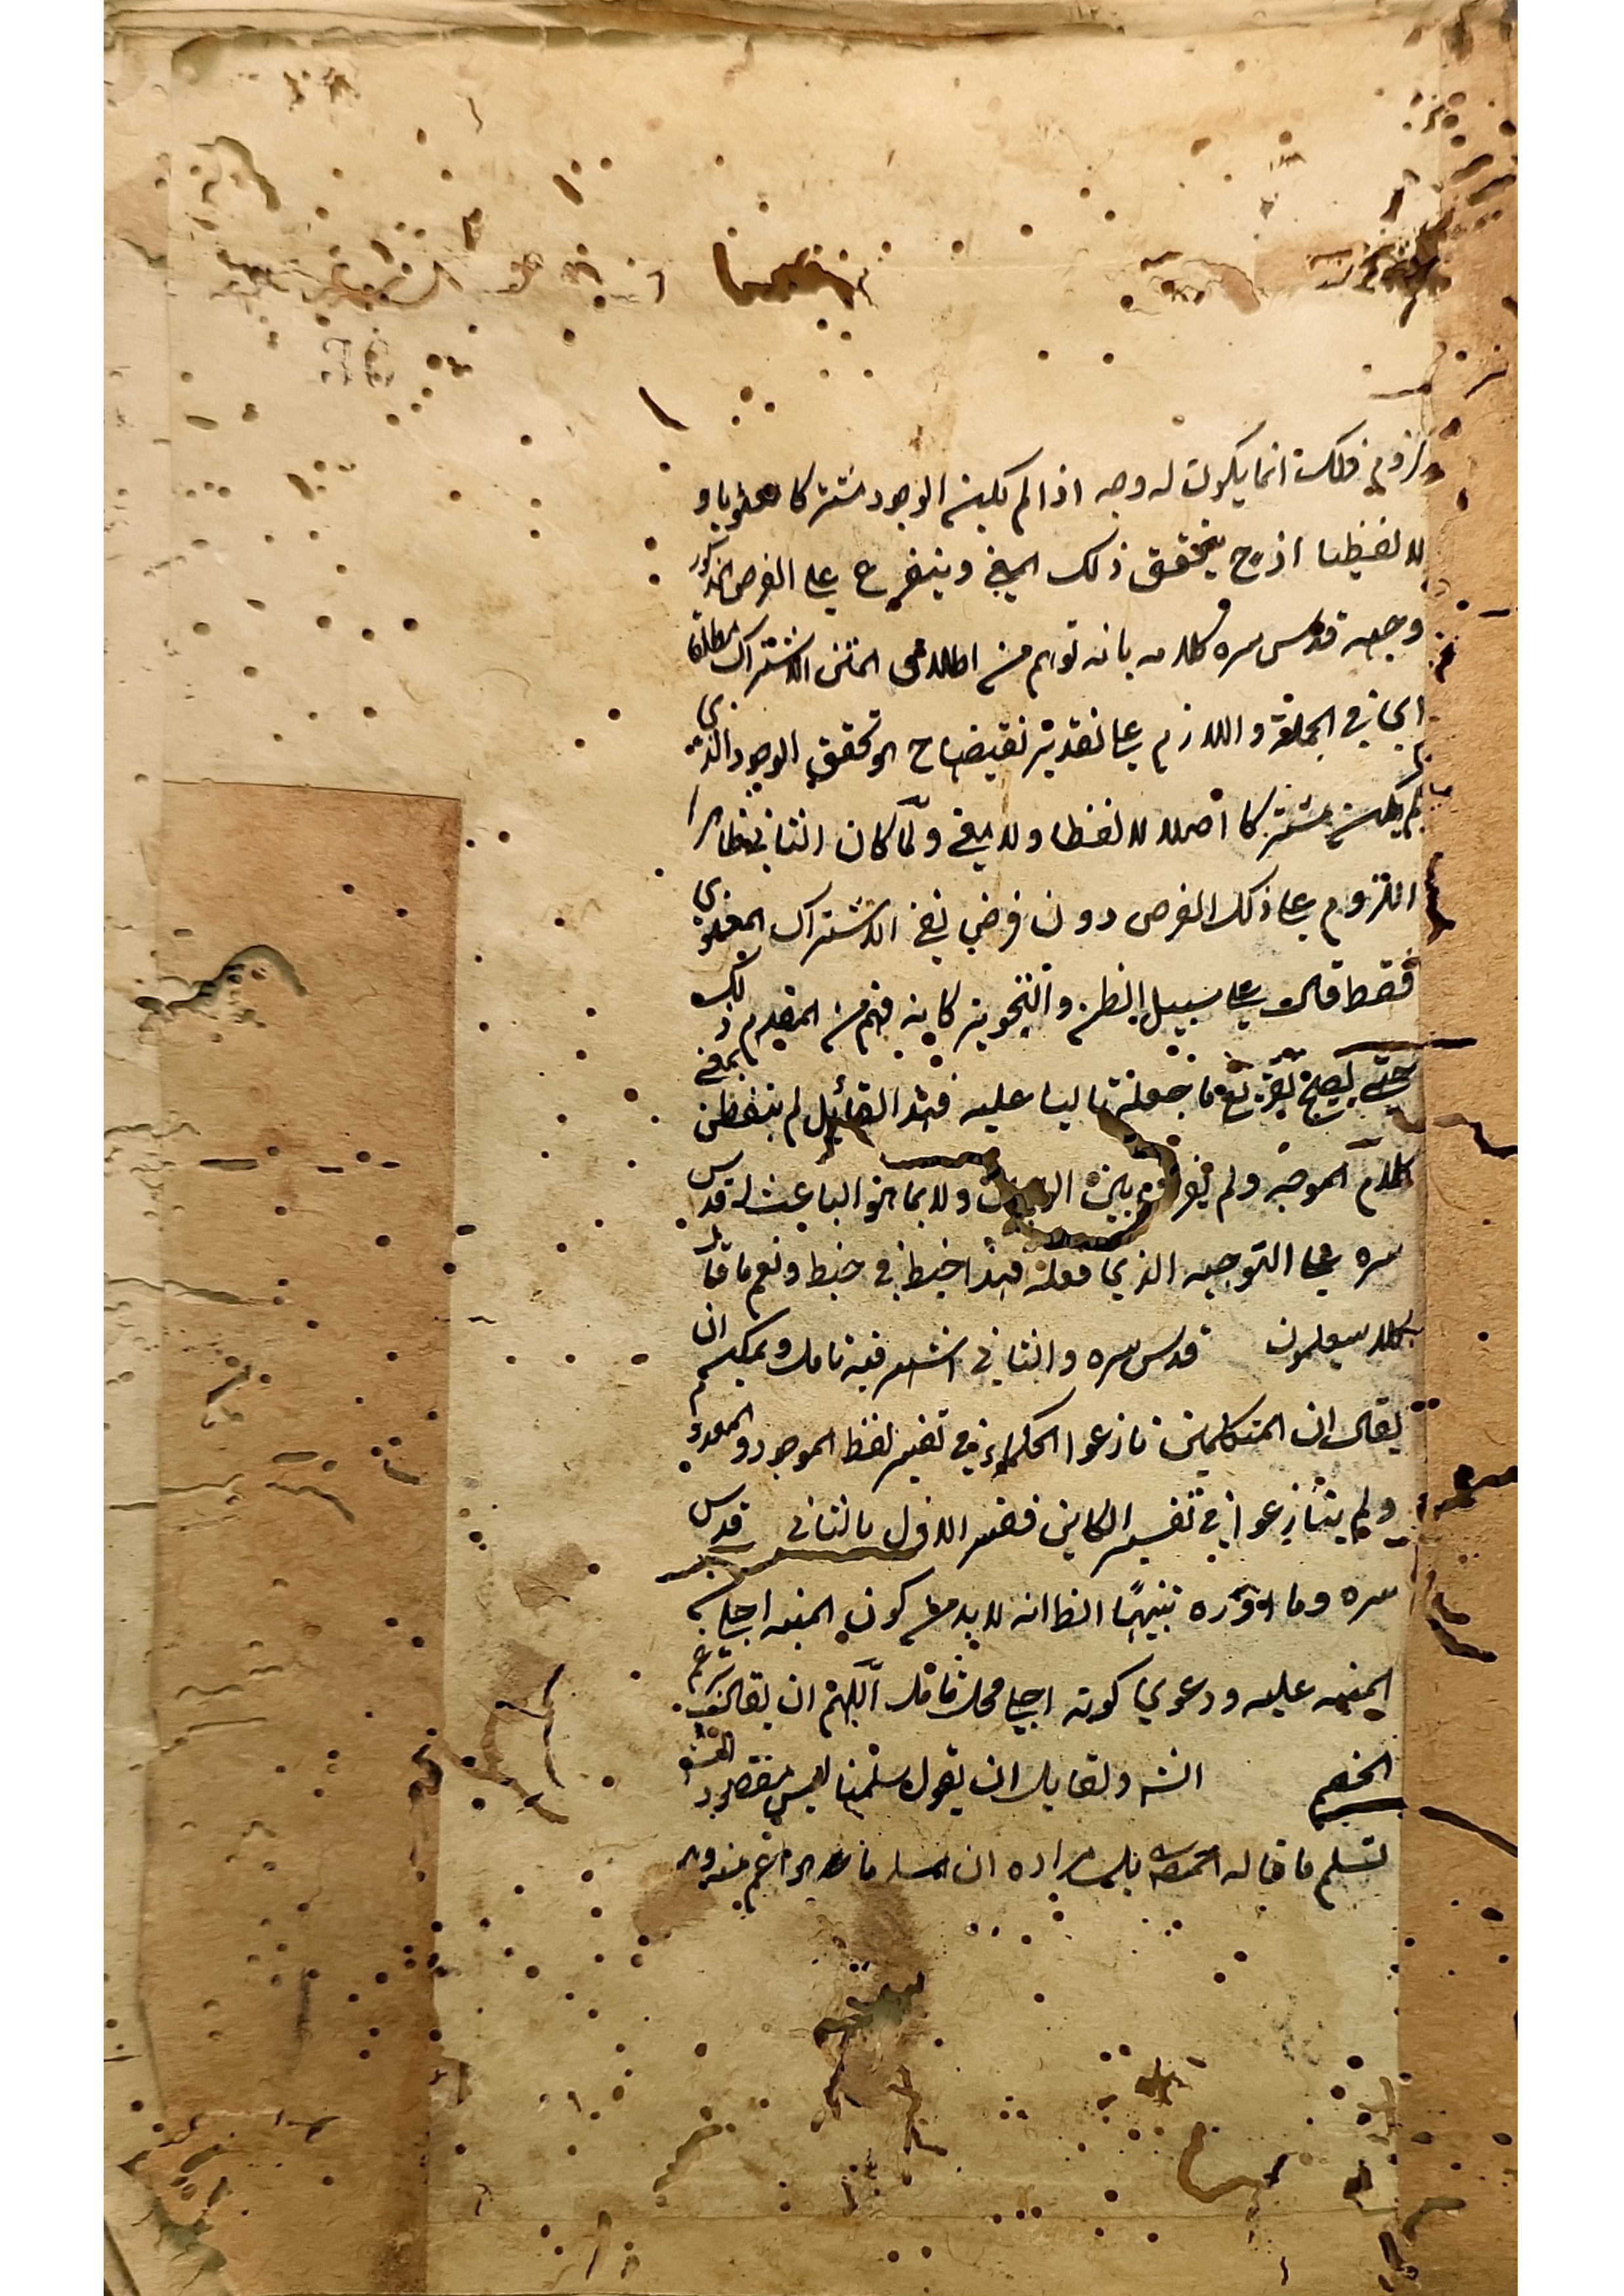 لزوم فلك انما يكون له وجه اذا لم يكن الوجود مشتركا معنويا و
لا لفظيا اذ ح يتحقق ذلك المعنى ويتفرع على الفرض المذكور
وجهه قدس سره كلامه بانه توهم من اطلاق المتن الاشتراك مطلقا
اى في الجملة واللازم على تقدير نقيضه ح هو تحقق الوجود الذى
لم يكن مشتركا اصلا لا لفظا ولا معنى ولما كان الثاني ظاهرا
اللزوم على ذلك الفرض دون فرض نفى الاشتراك المعنوى
فقط قال على سبيل الظن والتجويز كانه فهم من المقدم ذلك
حتى يصح تفريع ما جعله تاليا عليه فهذا القائل لم يتفطن بمعنى
كلام الموجه ولم يفرق بين ولا بما هو الباعث له قدس
سره على التوجيه الذي فعله فهذا خبط في خبط ونعم ما قال
كلا سيعلمون قدس سره والثاني اشهر فيه تامل ويمكن ان
يقال ان المتكلمين نازعوا الحكماء في تفسير لفظ الموجود والمعدوم
ولم يتنازعوا في تفسير الكاين ففسر الاول بالثاني قدس
سره وما اورده تنبيها الظ انه لا بد من كون المنبه اجلى من
المنبه عليه ودعوى كونه اجلى محل تامل اللهم ان يقال نزعم
الخصم الشه ولقايل ان يقول سلمنا ليس مقصود
تسلم ما قاله بل مراده ان زعم